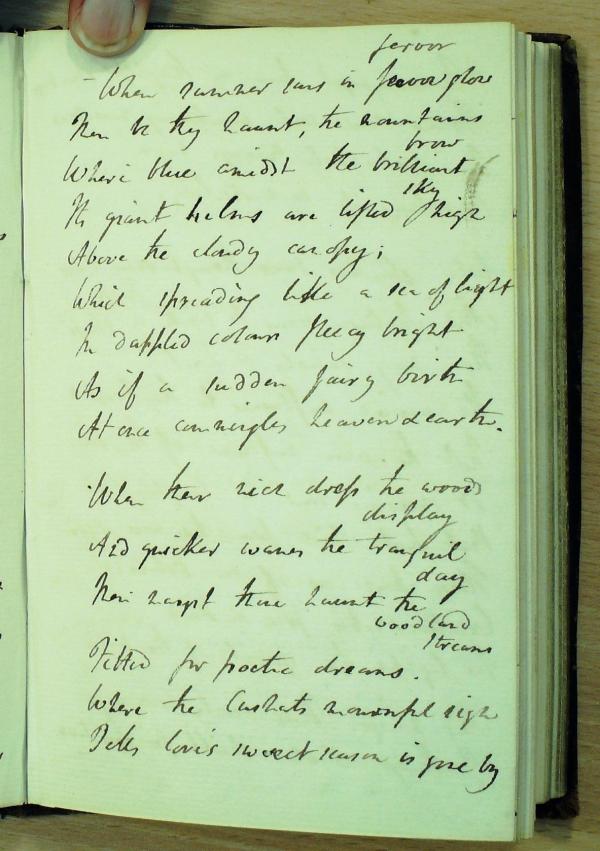 fervor
When summer suns in fervor glow
Then be thy haunt, the mountains
brow
Where blue amidst the brilliant
sky
Its giant helms are lifted high
Above the cloudy canopy;
Which spreading like a sea of light
In dappled colours fleecy bright
As if a sudden fairy birth
At once commingles heaven & earth.
When their rich dress the woods
display
And quicker wanes the tranquil
day
Then mayst thou haunt the
woodland
streams
Fitted for poetic dreams.
Where the Cushats mournful sigh
Tells love's sweet season is gone by